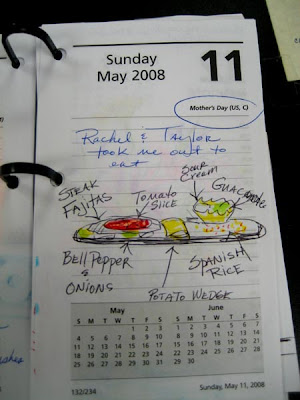 Sunday
May 2008
11
Mother's Day (US, C)
Rachel & Taylor
took me out to
eat
Sour
Cream
STEAK
FAJITAS
Tomato
Slice
GUACAMOLE
Bell Pepper
&
ONIONS
SPANISH
RICE
POTATO WEDGE
May
S M T W T F S
1 2 3
4 5 6 7 8 9 10
11 12 13 14 15 16 17
18 19 20 21 22 23 24
25 26 27 28 29 30 31
June
S M T W T F S
1 2 3 4 5 6 7
8 9 10 11 12 13 14
15 16 17 18 19 20 21
22 23 24 25 26 27 28
29 30
132/234
Sunday, May 11, 2008